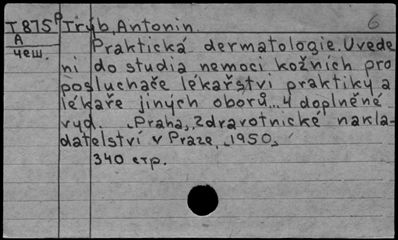 T875 P Trýb, Antonín. 6
A Praktická dermatologie. Uvede
чеш. ní do studia nemocí kožních pro
posluchače lékařství praktiky a
lékaře jiných oborů... 4 doplněné
vyd. Praha, Zdravotnické nakla-
datelství v Praze, 1950,
340 стр.